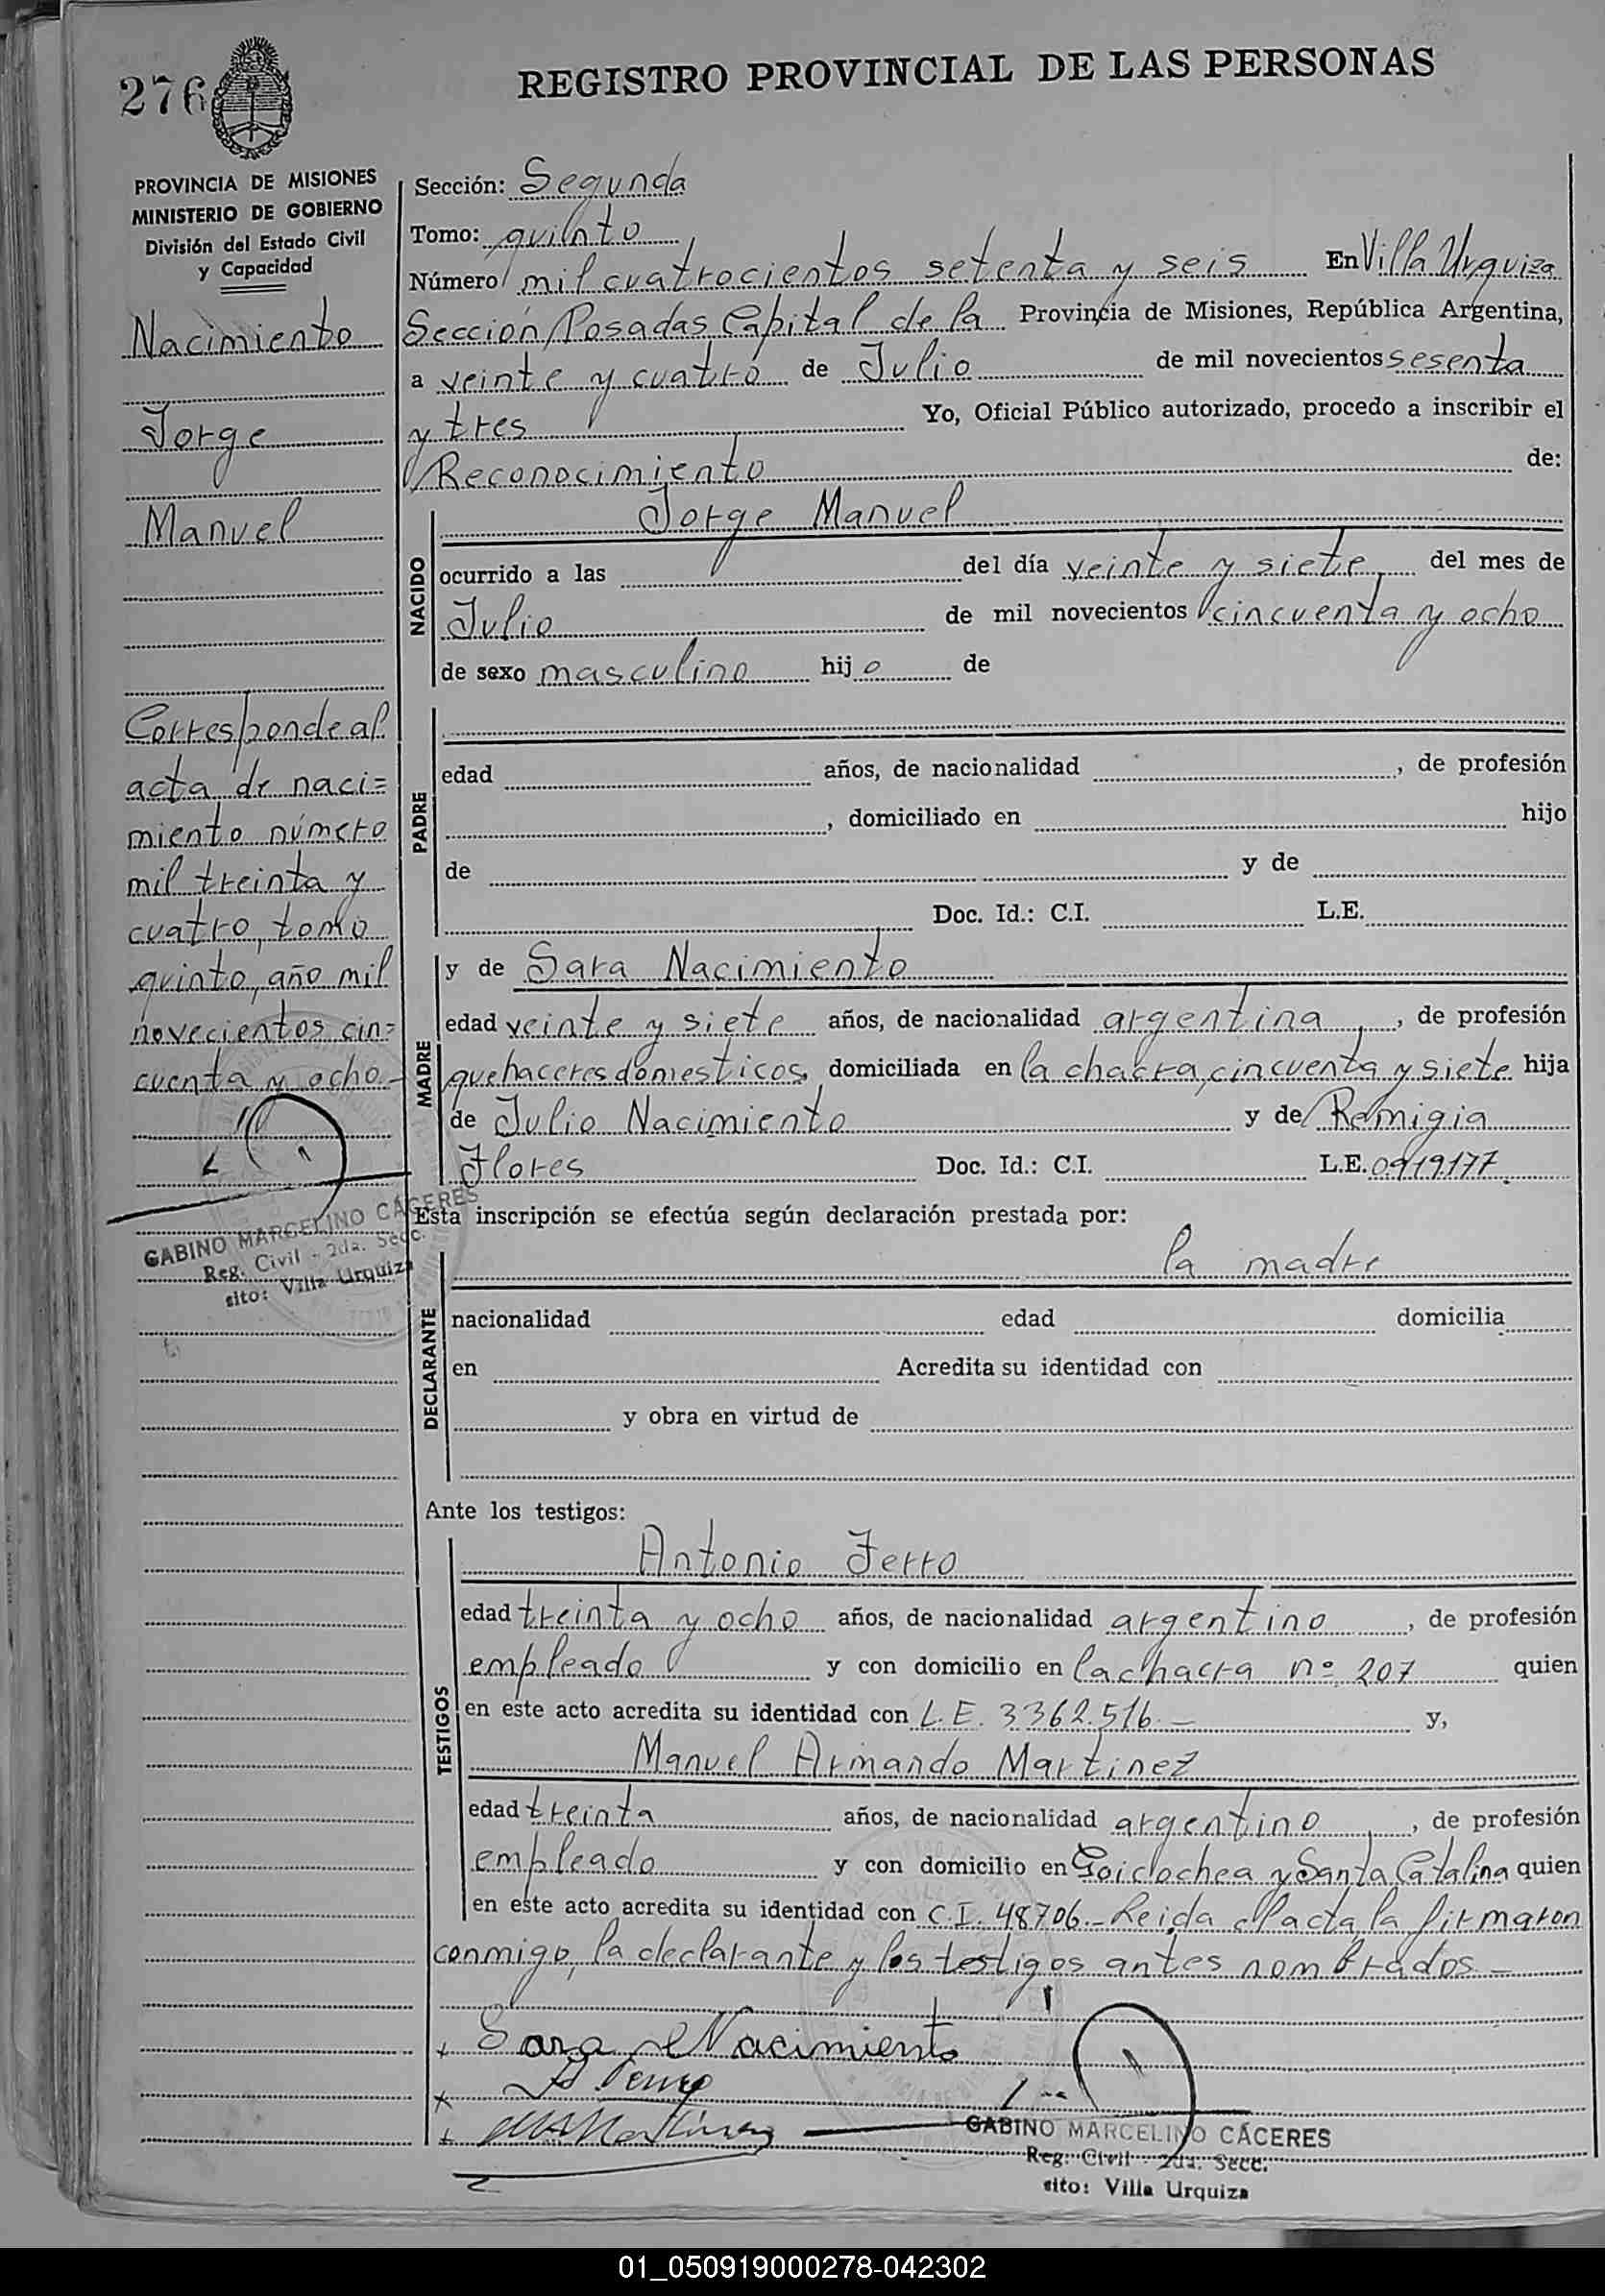 276
REGISTRO PROVINCIAL DE LAS PERSONAS
PROVINCIA DE MISIONES
MINISTERIO DE GOBIERNO
División del Estado Civil
y Capacidad
Nacimiento
Jorge
Manuel
Corresponde al
acta de naci=
miento número
mil treinta y
cuatro, tomo
quinto, año mil
novecientos cin=
cuenta y ocho
GABINO MARCELINO CÁCERES
Reg. Civil - 2da. Secc.
sito: Villa Urquiza
Sección: Segunda
Tomo: quinto
Número mil cuatrocientos setenta y seis En Villa Urquiza
Sección Posadas Capital de la Provincia de Misiones, República Argentina,
a veinte y cuatro de Julio de mil novecientos sesenta
y tres Yo, Oficial Público autorizado, procedo a inscribir el
Reconocimiento de:
NACIDO
Jorge Manuel
ocurrido a las del día veinte y siete del mes de
Julio de mil novecientos cincuenta y ocho
de sexo masculino hijo de
PADRE
edad años, de nacionalidad , de profesión
, domiciliado en hijo
de y de
Doc. Id.: C.I. L.E.
MADRE
y de Sara Nacimiento
edad veinte y siete años, de nacionalidad argentina , de profesión
quehaceres domesticos, domiciliada en la chacra, cincuenta y siete hija
de Julio Nacimiento y de Remigia
Flores Doc. Id.: C.I. L.E. 0.919.177
Esta inscripción se efectúa según declaración prestada por:
DECLARANTE
la madre
nacionalidad edad domicilia
en Acredita su identidad con
y obra en virtud de
Ante los testigos:
TESTIGOS
Antonio Ferro
edad treinta y ocho años, de nacionalidad argentino , de profesión
empleado y con domicilio en la chacra nº 207 quien
en este acto acredita su identidad con L.E. 3362.516.- y,
Manuel Armando Martinez
edad treinta años, de nacionalidad argentino , de profesión
empleado y con domicilio en Goicochea y Santa Catalina quien
en este acto acredita su identidad con C.I. 48706.- Leida el acta, la firmaron
conmigo, la declarante y los testigos antes nombrados -
Sara Nacimiento
A Ferro
MAMartinez
GABINO MARCELINO CÁCERES
Reg. Civil - 2da. Secc.
sito: Villa Urquiza
01_050919000278-042302